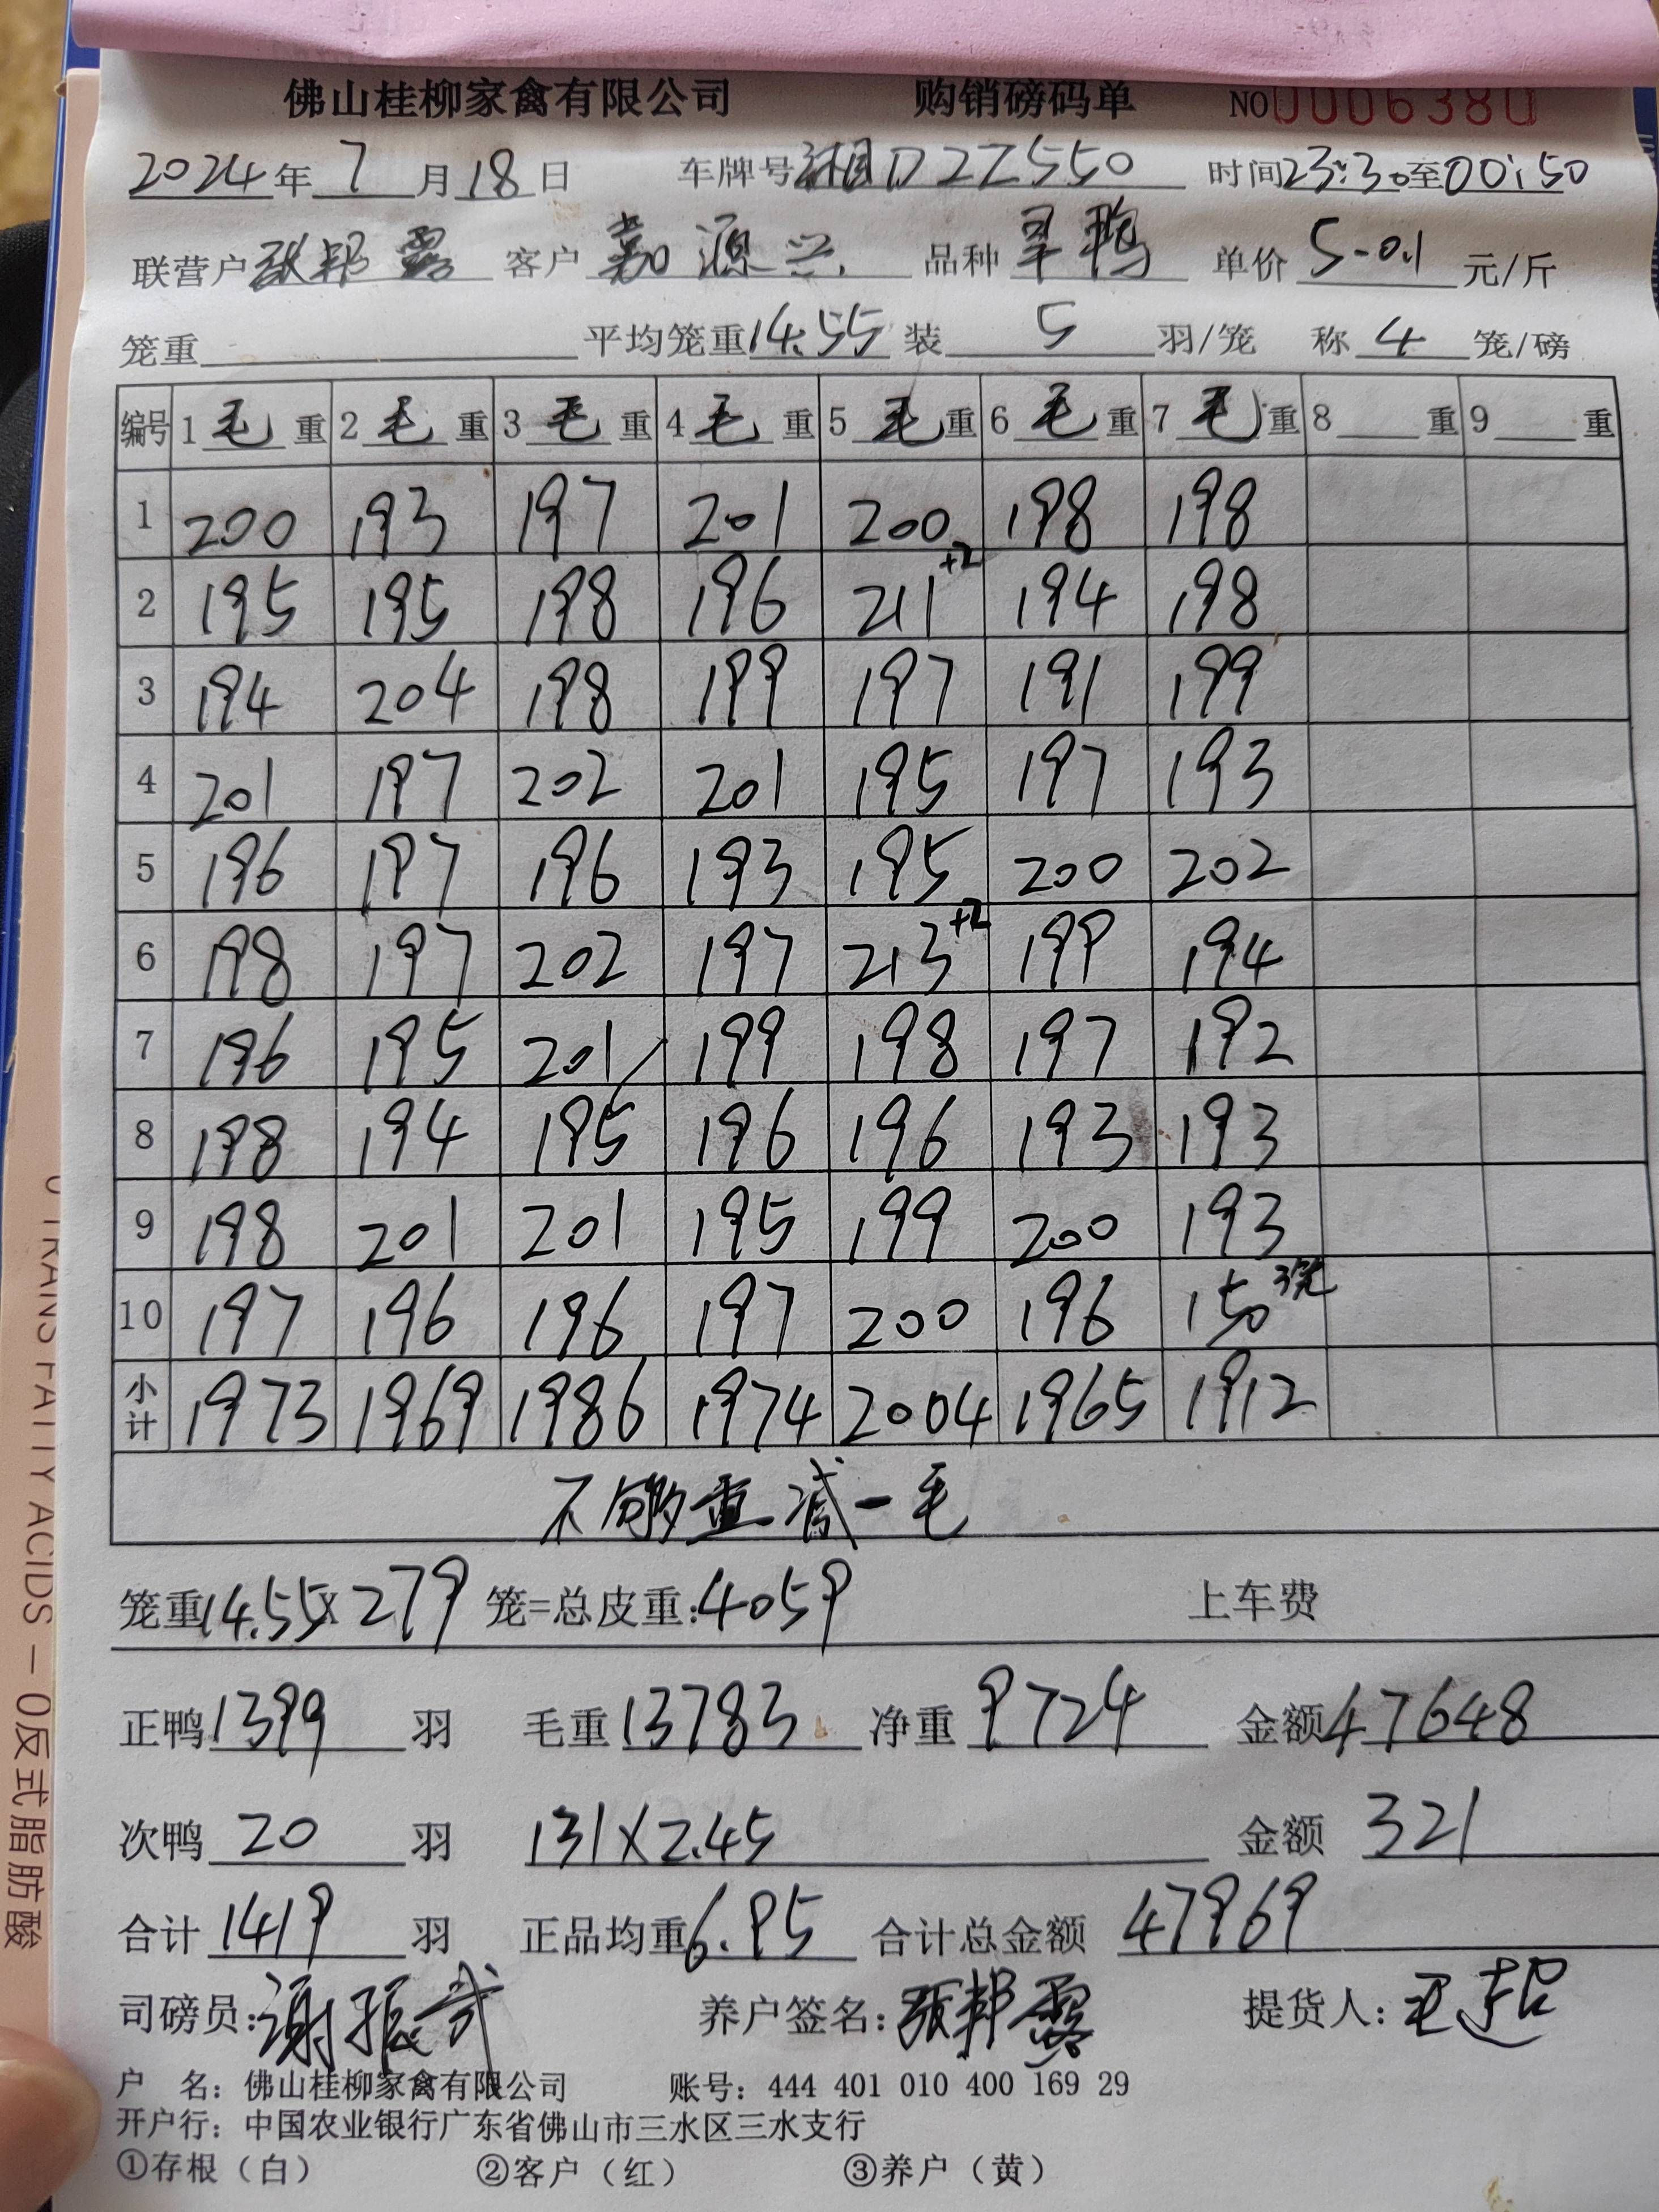 佛山桂柳家禽有限公司 购销磅码单 NO0006380
2024年7月18日 车牌号湘D2Z550 时间23:30至00:50
联营户张邦露 客户嘉源兴 品种旱鸭 单价5-0.1元/斤
笼重 平均笼重14.55 装5羽/笼 称4笼/磅
编号 1毛重 2毛重 3毛重 4毛重 5毛重 6毛重 7毛重 8重 9重
1 200 193 197 201 200 198 198
2 195 195 198 196 211+2 194 198
3 194 204 198 199 197 191 199
4 201 197 202 201 195 197 193
5 196 197 196 193 195 200 202
6 198 197 202 197 213+2 199 194
7 196 195 201 199 198 197 192
8 198 194 195 196 196 193 193
9 198 201 201 195 199 200 193
10 197 196 196 197 200 196 150 3笼
小计 1973 1969 1986 1974 2004 1965 1912
不够重减一毛
笼重14.55×279笼=总皮重:4059 上车费
正鸭1399羽 毛重13783 净重9724 金额47648
次鸭20羽 131×2.45 金额321
合计1419羽 正品均重6.95 合计总金额47969
司磅员:谢振武 养户签名:张邦露 提货人:王超
户 名: 佛山桂柳家禽有限公司 账号: 444 401 010 400 169 29
开户行: 中国农业银行广东省佛山市三水区三水支行
①存根（白） ②客户（红） ③养户（黄）
0 TRANS FATTY ACIDS - 0反式脂肪酸